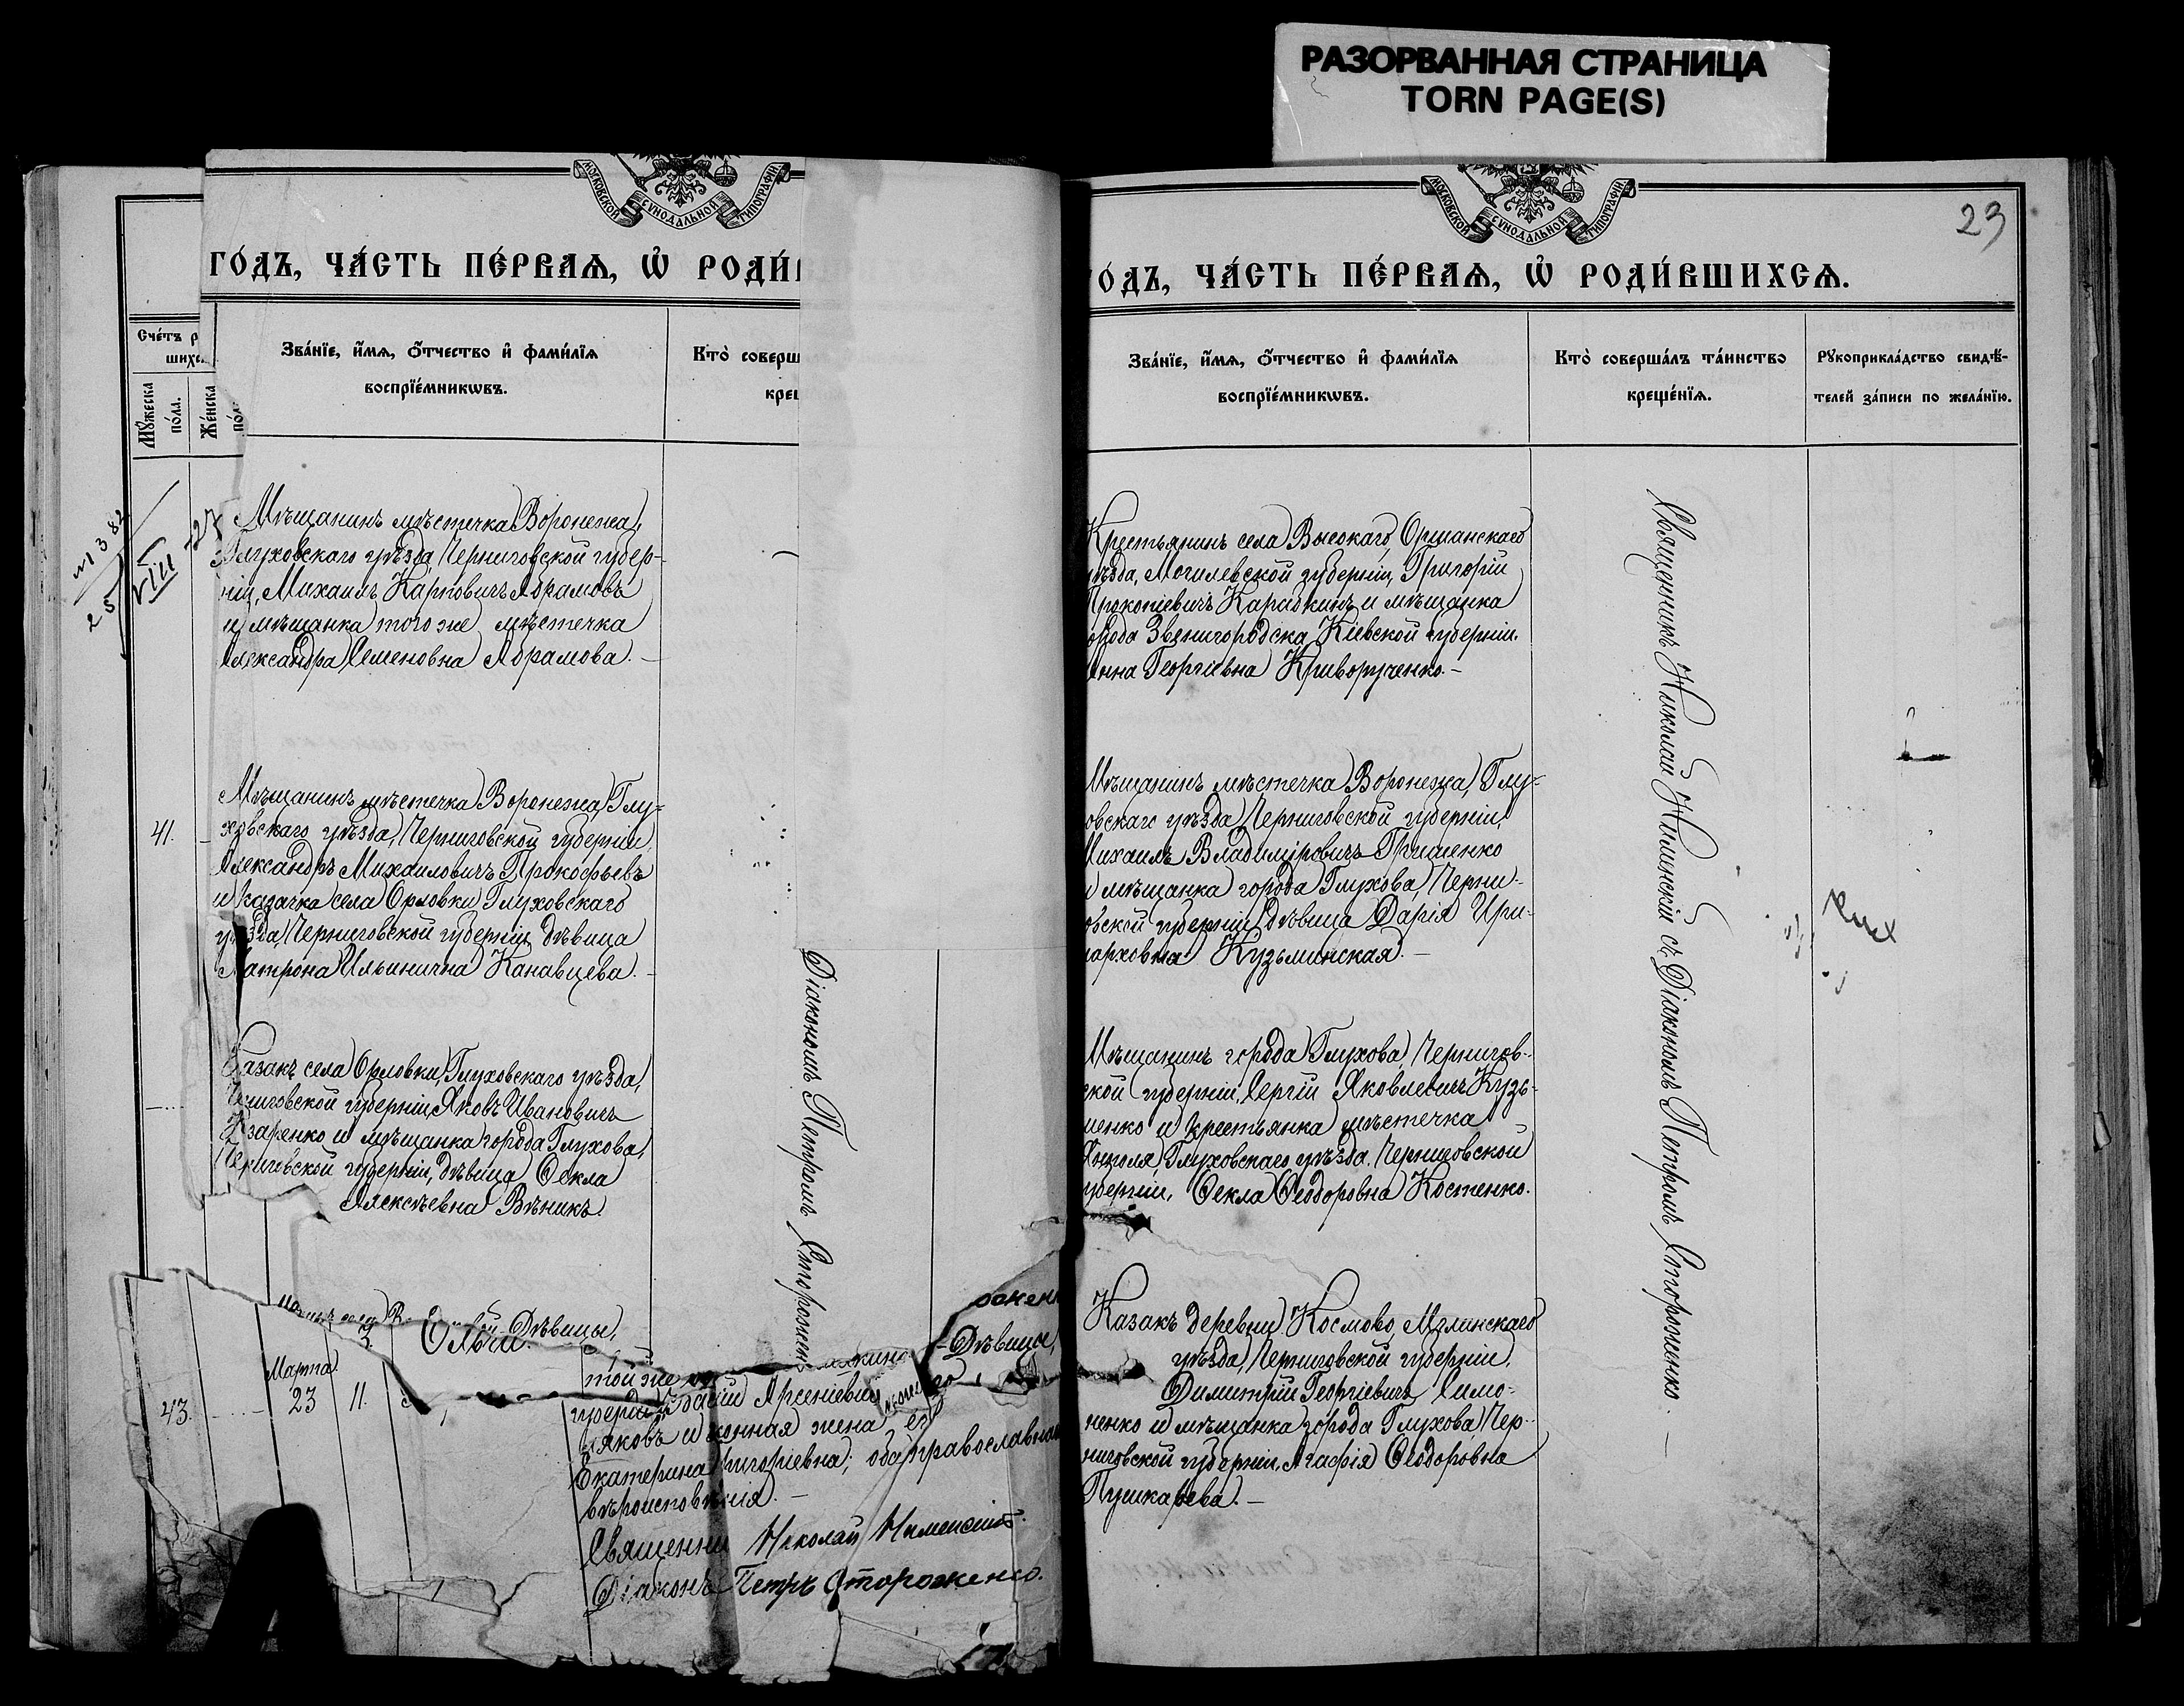 РАЗОРВАННАЯ СТРАНИЦА
TORN PAGE(S)
МОСКОВСКОЙ СѴНОДАЛЬНОЙ ТИПОГРАФІИ
ГО́ДЪ, ЧА́СТЬ ПЕ́РВАѦ, Ѡ҆ РОДИ́
Сче́тъ р
шихс
Мꙋ́жеска по́ла.
Же́нска по́л
Зва́нїе, и҆́мѧ, ѻ҆́тчество и҆ фами́лїѧ
воспрїе́мникѡвъ.
Кто̀ соверш
кре
м 382
25
VIII
27
Мѣщанинъ мѣстечка Воронежа,
Глуховскаго уѣзда, Черниговской губер-
ніи, Михаилъ Карповичъ Абрамовъ
и мѣщанка того же мѣстечка
Александра Семеновна Абрамова. –
41.
Мѣщанинъ мѣстечка Воронежа, Глу-
ховскаго уѣзда, Черниговской губерніи,
Александръ Михаиловичъ Прокофьевъ
и казачка села Орловки Глуховскаго
уѣзда, Черниговской губерніи, дѣвица
Матрона Ильинична Канавцева. –
Казакъ села Орловки, Глуховскаго уѣзда,
Черниговской губерніи, Яковъ Ивановичъ
заренко и мѣщанка города Глухова,
Черниговской губерніи, дѣвица Ѳекла
Алексѣевна Вѣникъ.
Діакономъ Петромъ Сторожен
Дѣвицы,
Дѣвицы,
43.
Марта
23
11.
той же
губерніи Арсеніевич
яковъ и законная жена его
Екатерина Григоріевна; оба православнаго
вѣроисповѣданія. –
Священни Николай Нименскій.
Діаконъ Петръ Стороженко.
23
МОСКОВСКОЙ СѴНОДАЛЬНОЙ ТИПОГРАФІИ
О́ДЪ, ЧА́СТЬ ПЕ́РВАѦ, Ѡ҆ РОДИ́ВШИХСѦ.
Зва́нїе, и҆́мѧ, ѻ҆́тчество и҆ фами́лїѧ
воспрїе́мникѡвъ.
Кто̀ соверша́лъ та́инство
креще́нїѧ.
Рꙋкоприкла́дство свидѣ́-
телей за́писи по жела́нїю.
Крестьянинъ села Высокаго, Оршанскаго
уѣзда, Могилевской губерніи, Григорій
Прокопіевичъ Карибкинъ и мѣщанка
города Звенигородска Кіевской губерніи.
Анна Георгіевна Криворученко. –
Мѣщанинъ мѣстечка Воронежа, Глу-
овскаго уѣзда Черниговской губерніи,
Михаилъ Владиміровичъ Гришенко
и мѣщанка города Глухова, Черни-
овской губерніи, дѣвица Дарія Ири-
нарховна Кузьминская. –
Мѣщанинъ города Глухова, Чернигов-
ской губерніи, Сергій Яковлевичъ Кузь-
менко и крестьянка мѣстечка
Янполя, Глуховскаго уѣзда. Черниговской
губерніи, Ѳекла Ѳеодоровна Костенко.
Казакъ деревни Космово, Мглинскаго
уѣзда, Черниговской губерніи,
Димитрій Георгіевичъ Симо-
ненко и мѣщанка города Глухова, Чер-
ниговской губерніи, Агафія Ѳеодоровна
Пушкарева. –
Священникъ Николай Нименскій съ Діакономъ Петромъ Стороженко. –